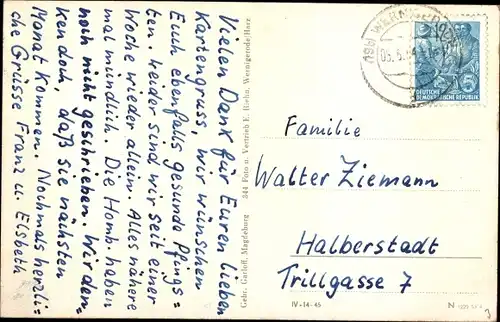 Vielen Dank für Euren lieben
Kartengruss, wir wünschen
Euch ebenfalls gesunde Pfings=
ten. Leider sind wir seit einer
Woche wieder allein. Alles nähere
mal mündlich. Die Homb. haben
noch nicht geschrieben. Wir den=
ken doch, daß sie nächsten
Monat kommen. Nochmals herzli=
che Grüsse Franz u. Elsbeth
Gebr. Garloff, Magdeburg 344 Foto u. Vertrieb E. Riehn, Wernigerode/Harz
DEUTSCHE
DEMOKRATISCHE REPUBLIK
5
Familie
Walter Ziemann
Halberstadt
Trillgasse 7
IV-14-45
N